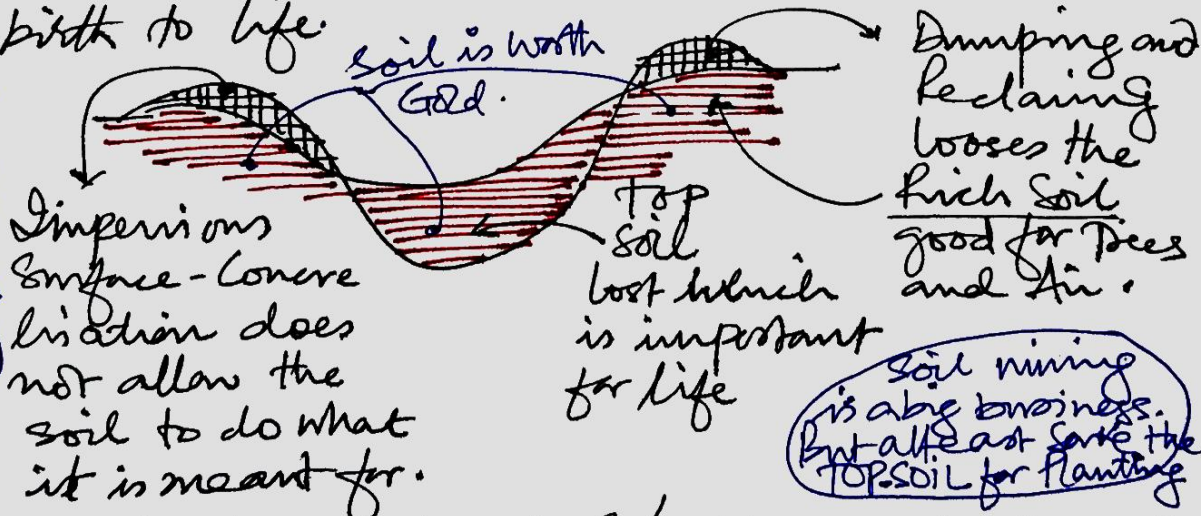 birth to life.
soil is worth
Gold.
Dumping and
Reclaiming
looses the
Rich Soil
good for Trees
and Air.
Impervious
Surface-Concre
lisation does
not allow the
soil to do what
it is meant for.
Top
soil
lost which
is important
for life
soil mining
is a big business.
But atleast save the
TOPSOIL for Planting